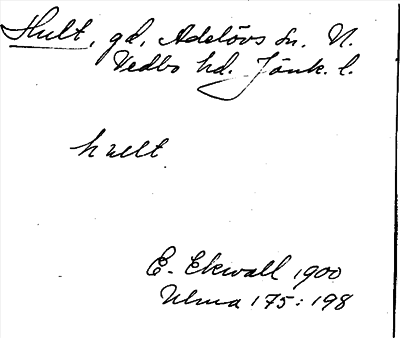 Hult, gd, Adelövs sn. N.
Vedbo hd. Jönk. l.
hult
E. Ekwall 1900
Ulma 175:198